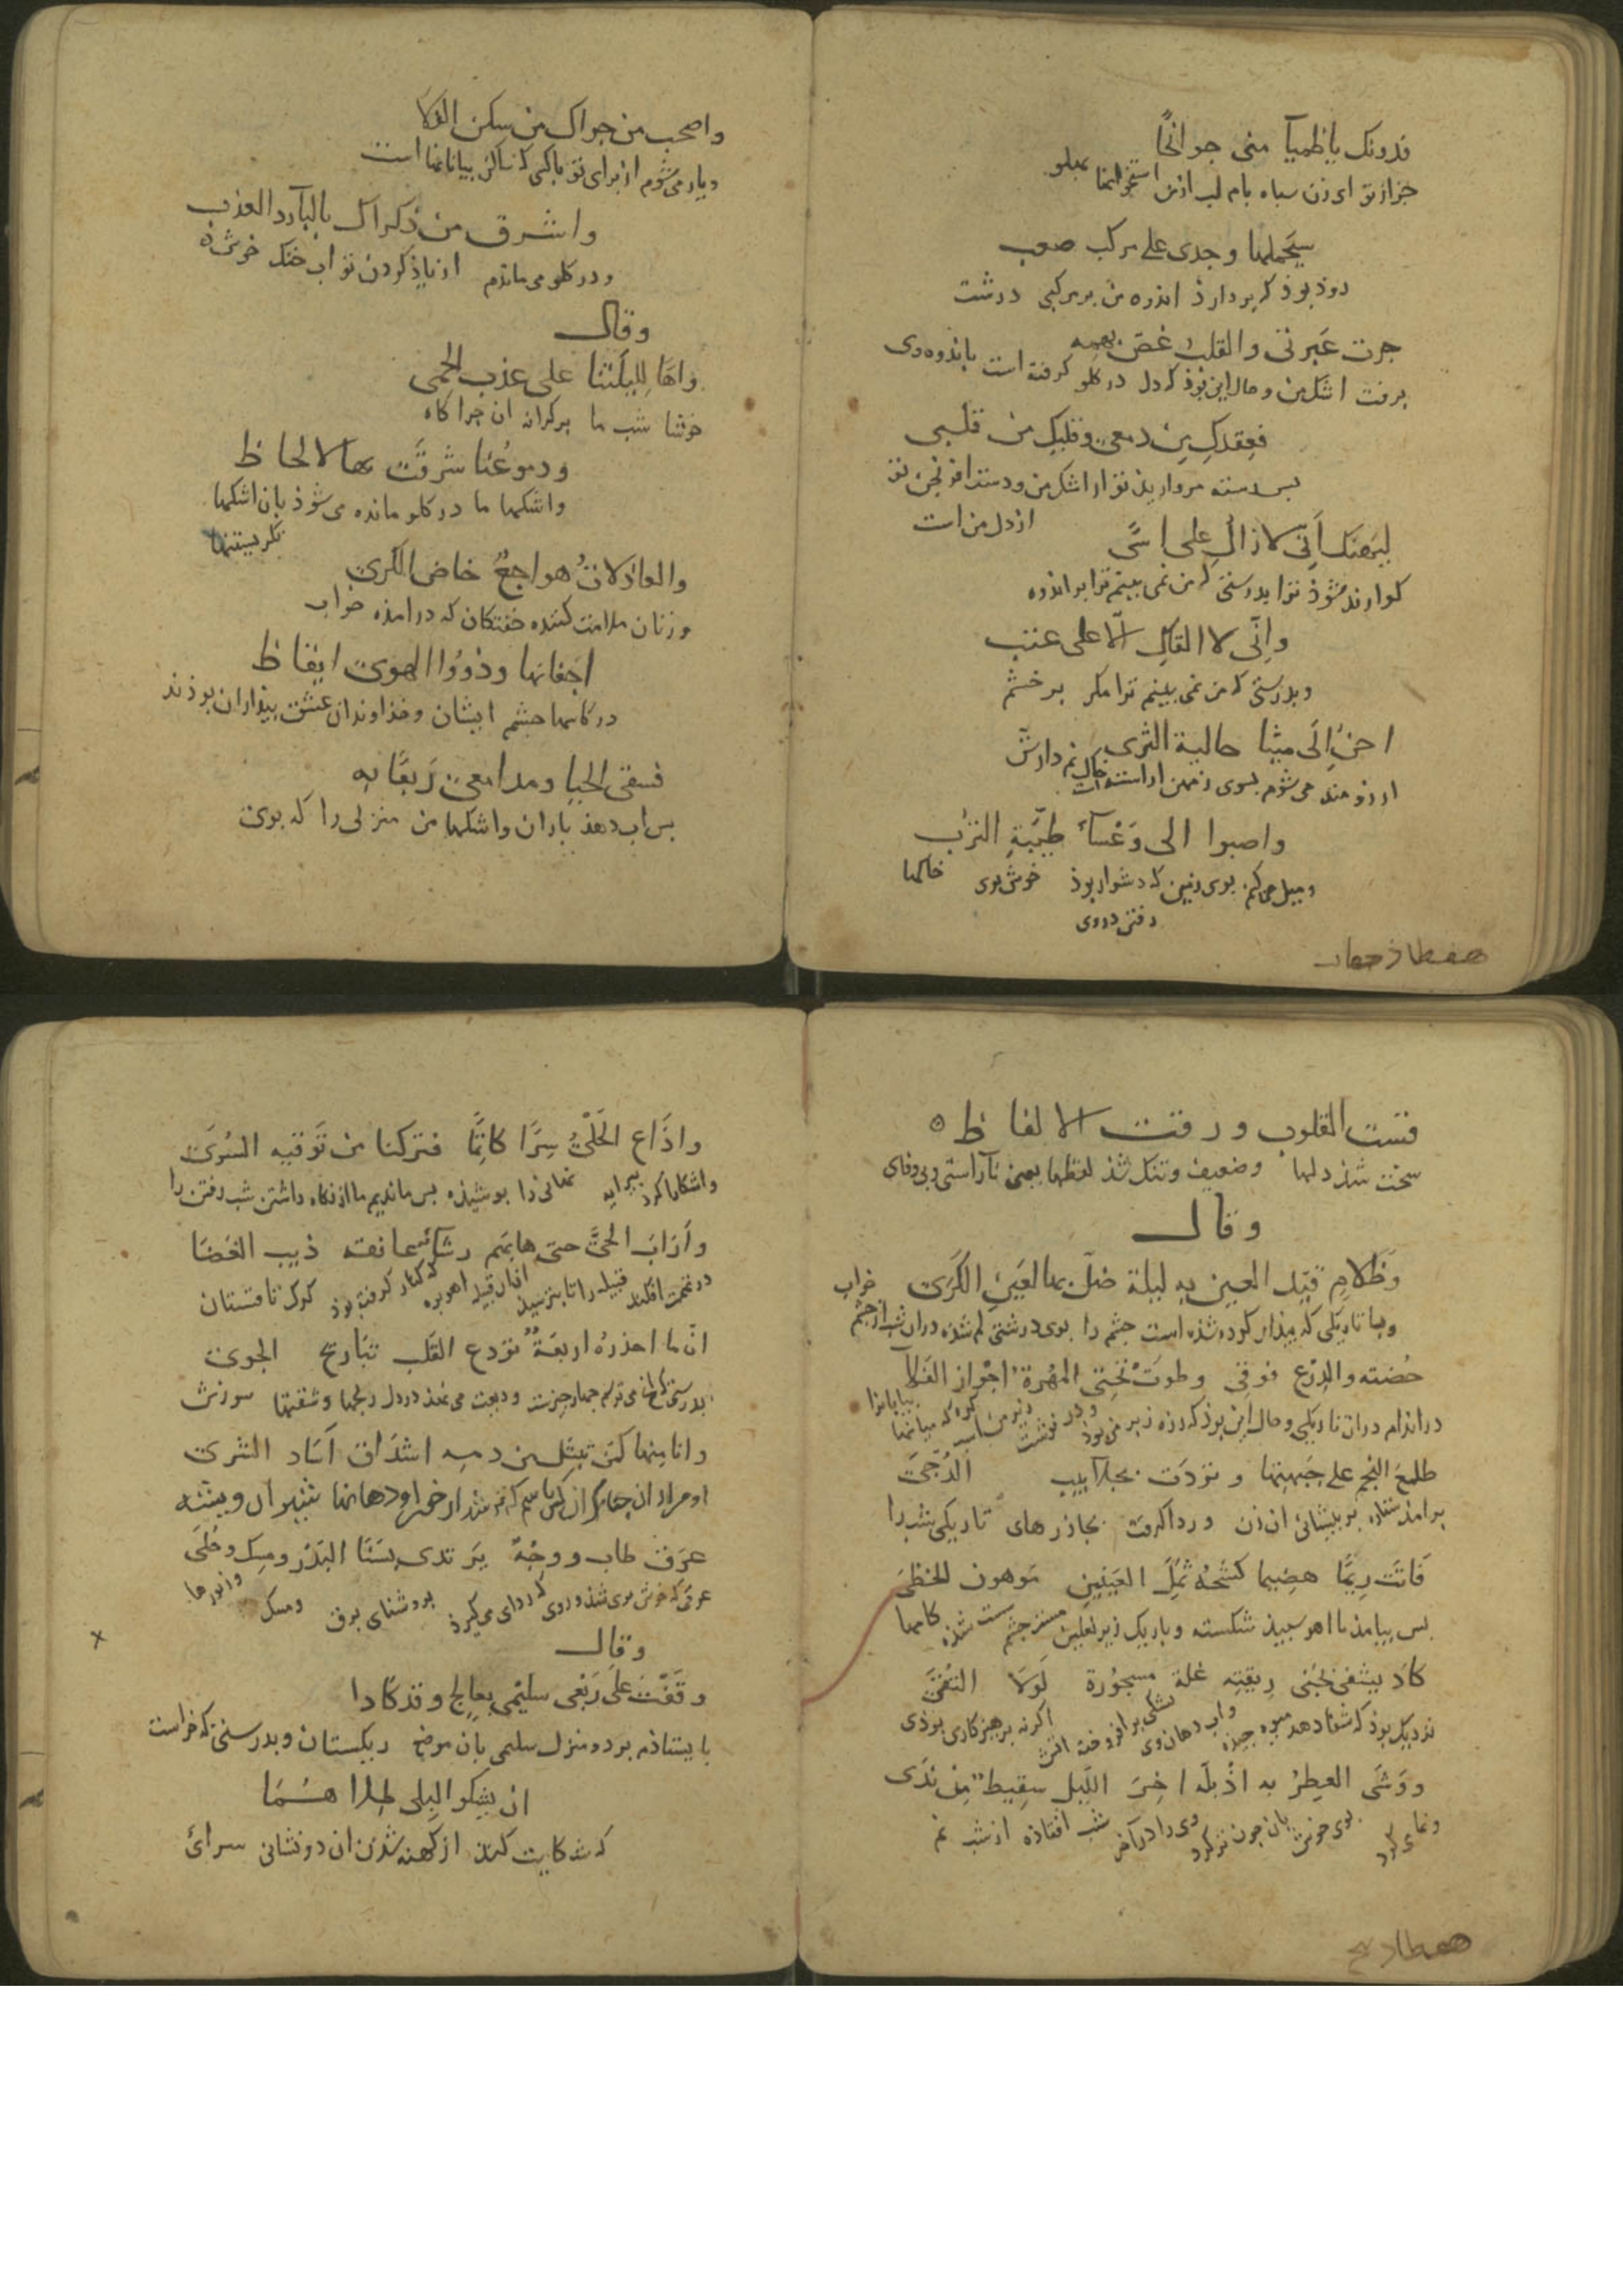 فدونك يا ظميآ منى جوانحًا
جزاز تو ای زن سیاه بام لب از من استخوانها پهلو
سيحملها وجدى على مركب صعب
زوذ بوذ كه بردارذ اندوه من بر مركبی درشت
جرت عبرتى والقلب غصّ بهمه
برفت اشك من وحال این بوذ كه دل در كلو كرفته است باندوه وی
فعقدك من دمعى وقلبك من قلبى
بس دسته مروارید تو از اشك من ودست افرنجن تو
از دل من است
ليهنك انّى لا ازال على اسًى
كوارنده شوذ ترا بدرستی كه من نمی بینم ترا بر اندوه
وانّى لا القاك الّا على عتب
وبدرستی كه من نمی بینم ترا مكر بر خشم
احنّ الى ميثا حالية الثرى
ارزومند می شوم بسوی زمین اراسته خاك نم دارش
واصبوا الى وعسآء طيّبة الترب
ومیل می كنم بوی زمین كه دشوار بوذ خوش بوی خاكها
رفتن در وی
هفطاذ جهار
واصحب من جراك من سكن الفلا
ویار می شوم از برای تو باكی كه ساكن بیابانها است
واشرق من ذكراك بالبآرد العذب
ودر كلو می ماندم از یاذ كردن تو اب خنك خوش
وقال
واهًا لليلتنا على عذب الحمى
خوشا شب ما بر كرانه ان جراكاه
ودموعنا شرقت بها الالحاظ
واشكها ما در كلو مانده می شوذ بان اشكها
نكریستنها
والعاذلات هواجع خاض الكرى
وزنان ملامت كننده خفتكان كه در امذه خواب
اجفانها وذووا الهوى ايقاظ
در كاسها چشم ایشان وخذاوندان عشق بیذاران بوذند
فسقى الحيا ومدامعى ربعًا به
بس اب دهذ باران واشكها من منزلی را كه بوی
قست القلوب ورقت الالفاظ
سخت شذ دلها وضعیف وتنك شذ لفظها یعنی ناراستی وبی وفای
وقال
وظلام قيّد العين به ليلة ضلّ بها العين الكرى
وبا تاریكی كه بیذار كرده شذه است چشم را بوی درشتی كم شذه دران شب از چشم خواب
خضته والدرع فوقى وطوت تحتى المهرة اجواز الفلا
در اندام دران تاریكی وحال این بوذ كه زره زبر من بوذ ودر نوشت زیر من اسب كره میانها بیابانرا
طلع النجم على جبهتها وتردّت بجلابيب الدجى
برامذ ستاره بر پیشانی ان زن وردا كرفت بجاذرهای تاریكی شب را
فاتت ريمًا هضيما كشحه ثمل العينين موهون الخطى
بس بیامذ با اهو سبیذ شكسته وباریك زیر بغلین مست چشم سست شذه كامها
كاد يشفى بجنى ريقته غلة مسجورة لولا التقى
نزدیك بوذ كه شفا دهد بمیوه جیده واب دهان وی تشنكی برافروخته اتش اكر نه برهیزكاری بوذی
ووشى العطر به اذ بلّه اخر الليل سقيط من ندى
وغمازی كرد بوی خوش بان جون تر كرد وی را در آخر شب افتاذه از شب نم
هفطاذ پنج
واذاع الحلى سرًّا كاتمًا فتركنا من توقيه السرى
واشكارا كرد پیرایه نهانی را بوشیذه بس ماندیم ما از نكاه داشتن شب رفتن را
وارابَ الحىّ حتى هابهم رشأ عانقه ذيب الغضا
در تهمت افكند قبیله را تا بترسید ازان قبیله اهو بره كه كنار كرفته بوذ كرك تاغستان
انّ ما احذره اربعة تودع القلب تباريح الجوى
بدرستی كه انج من می ترسم جهار جیزست ودیعت می نهذ در دل رنجها وشفتها سوزش
وانا منها كمن تبتل من دمه اشداق آساد الشرى
عرف طاب ووجه يرتدى بسنا البدر ومسك وحلى
عرقی كه خوش بوی شذ وروی كه ردای می كیرذ بروشنای برق ومسك وزیورها
وقال
وقفت على ربعى سليمى بعالج وقد كادا
بایستاذم بر دو منزل سلیمی بان موضع ریكستان وبدرستی كه خواست
ان يشكو البلى طللا هما
كه شكایت كنند از كهنه شذن ان دو نشانی سرائ